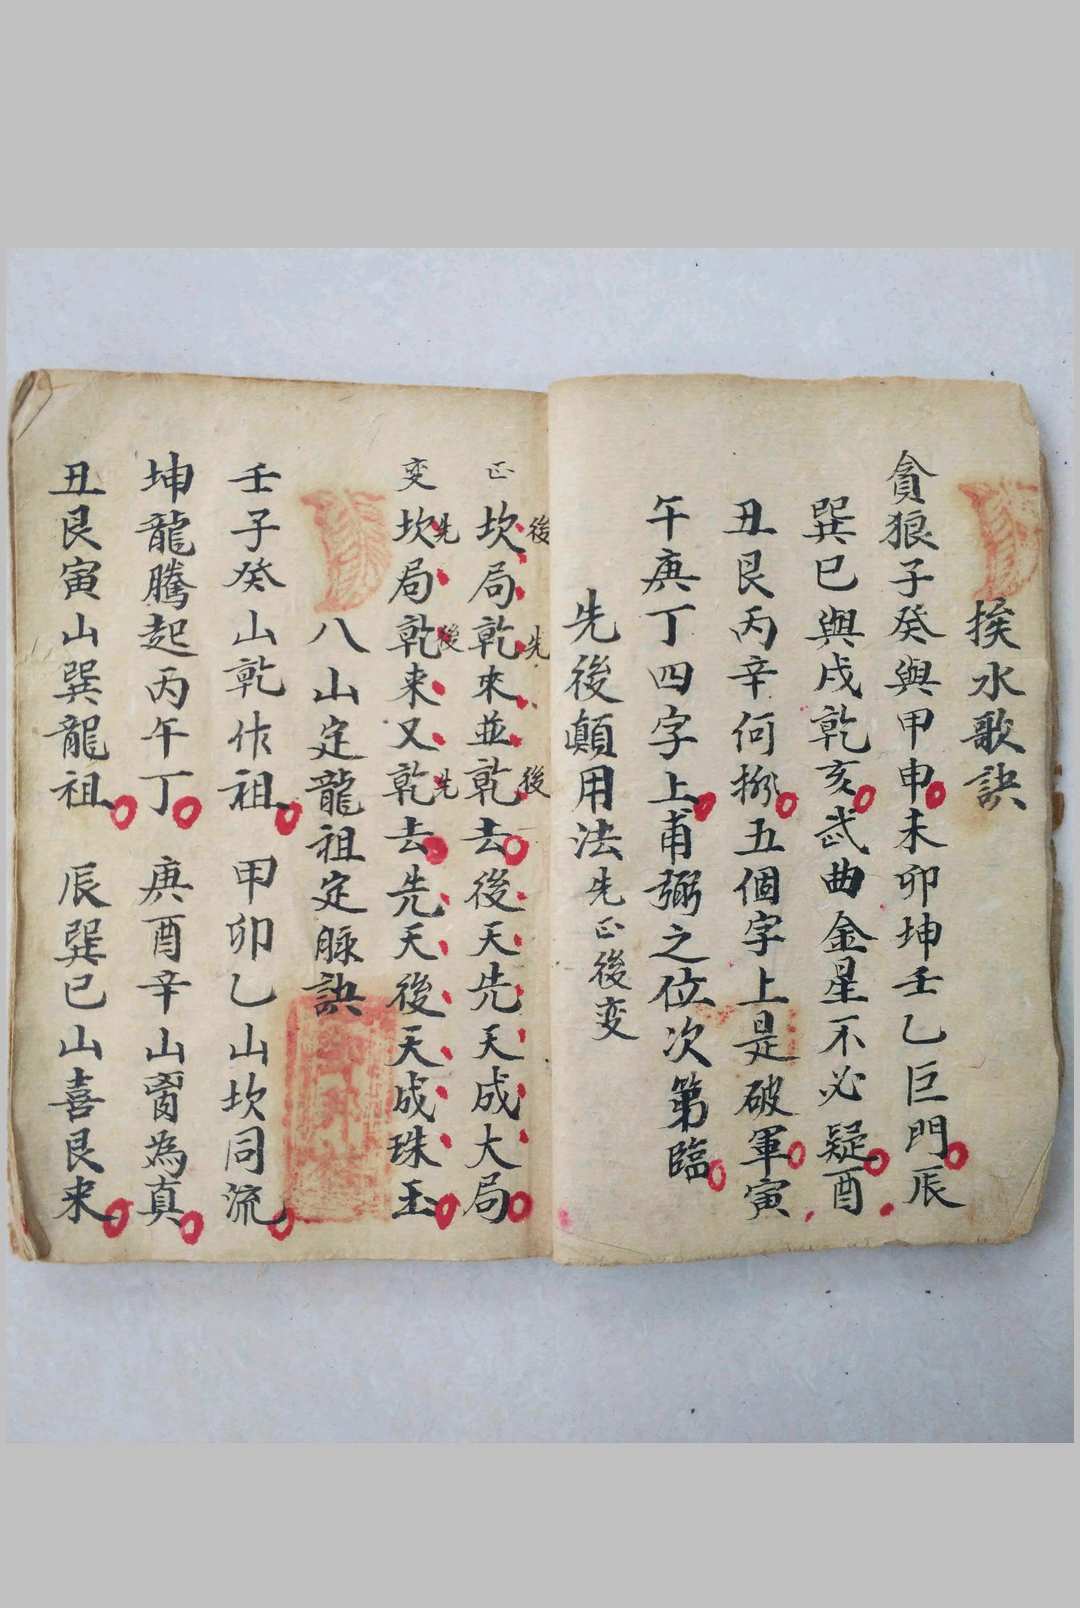 挨水歌訣
貪狼子癸與甲申未卯坤壬乙巨門辰
巽巳與戌乾亥武曲金星不必疑酉
丑艮丙辛何挪五個字上是破軍寅
午庚丁四字上甫弼之位次第臨
先後顛用法先正後变
後 先 後
正坎局乾來並乾去後天先天成大局
先 後 先
变坎局乾来又乾去先天後天成珠玉
八山定龍祖定脉訣
壬子癸山乾作祖 甲卯乙山坎同流
坤龍騰起丙午丁 庚酉辛山离為真
丑艮寅山巽龍祖 辰巽巳山喜艮来